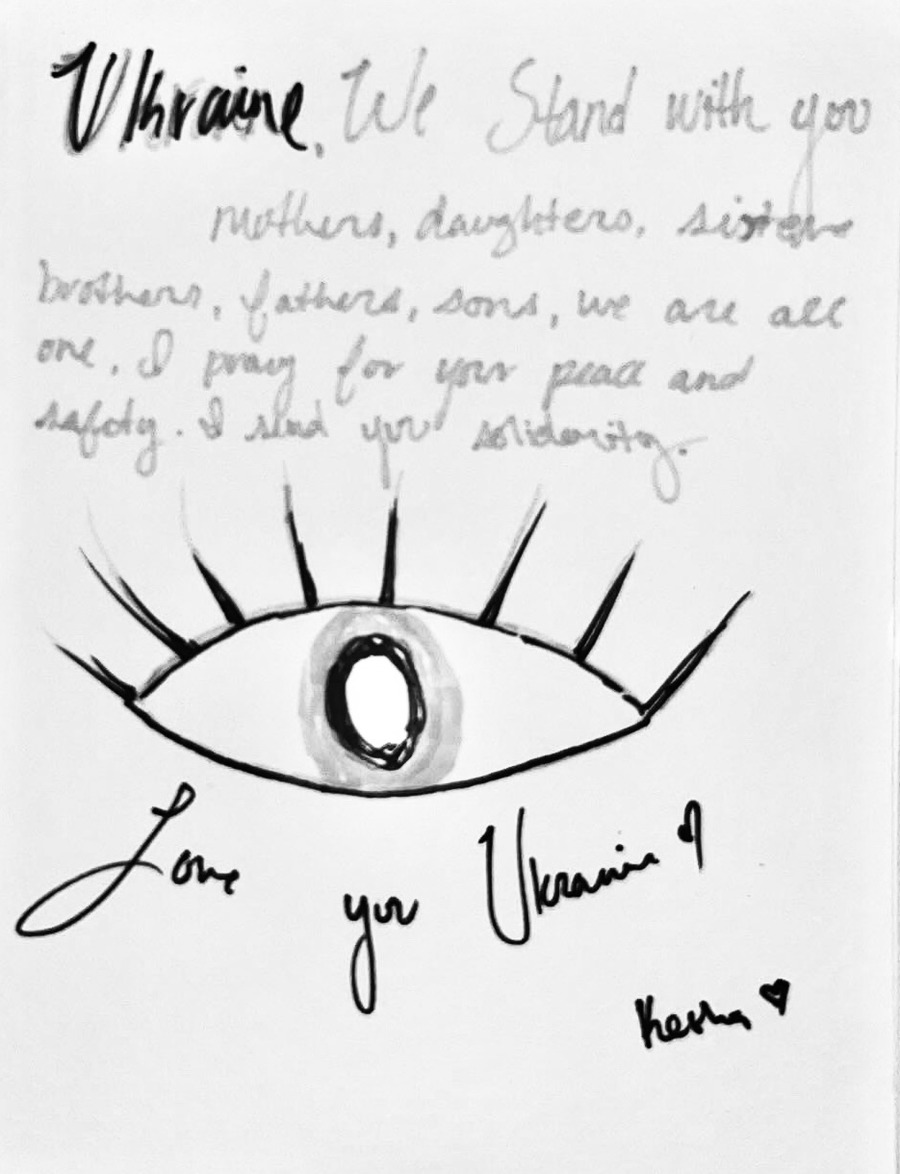 Ukraine, We Stand with you
mothers, daughters, sisters
brothers, fathers, sons, we are all
one. I pray for your peace and
safety. I send you solidarity.
Love you Ukraine
Kesha